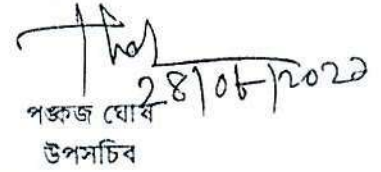 28/06/2022
পঙ্কজ ঘোষ
উপসচিব